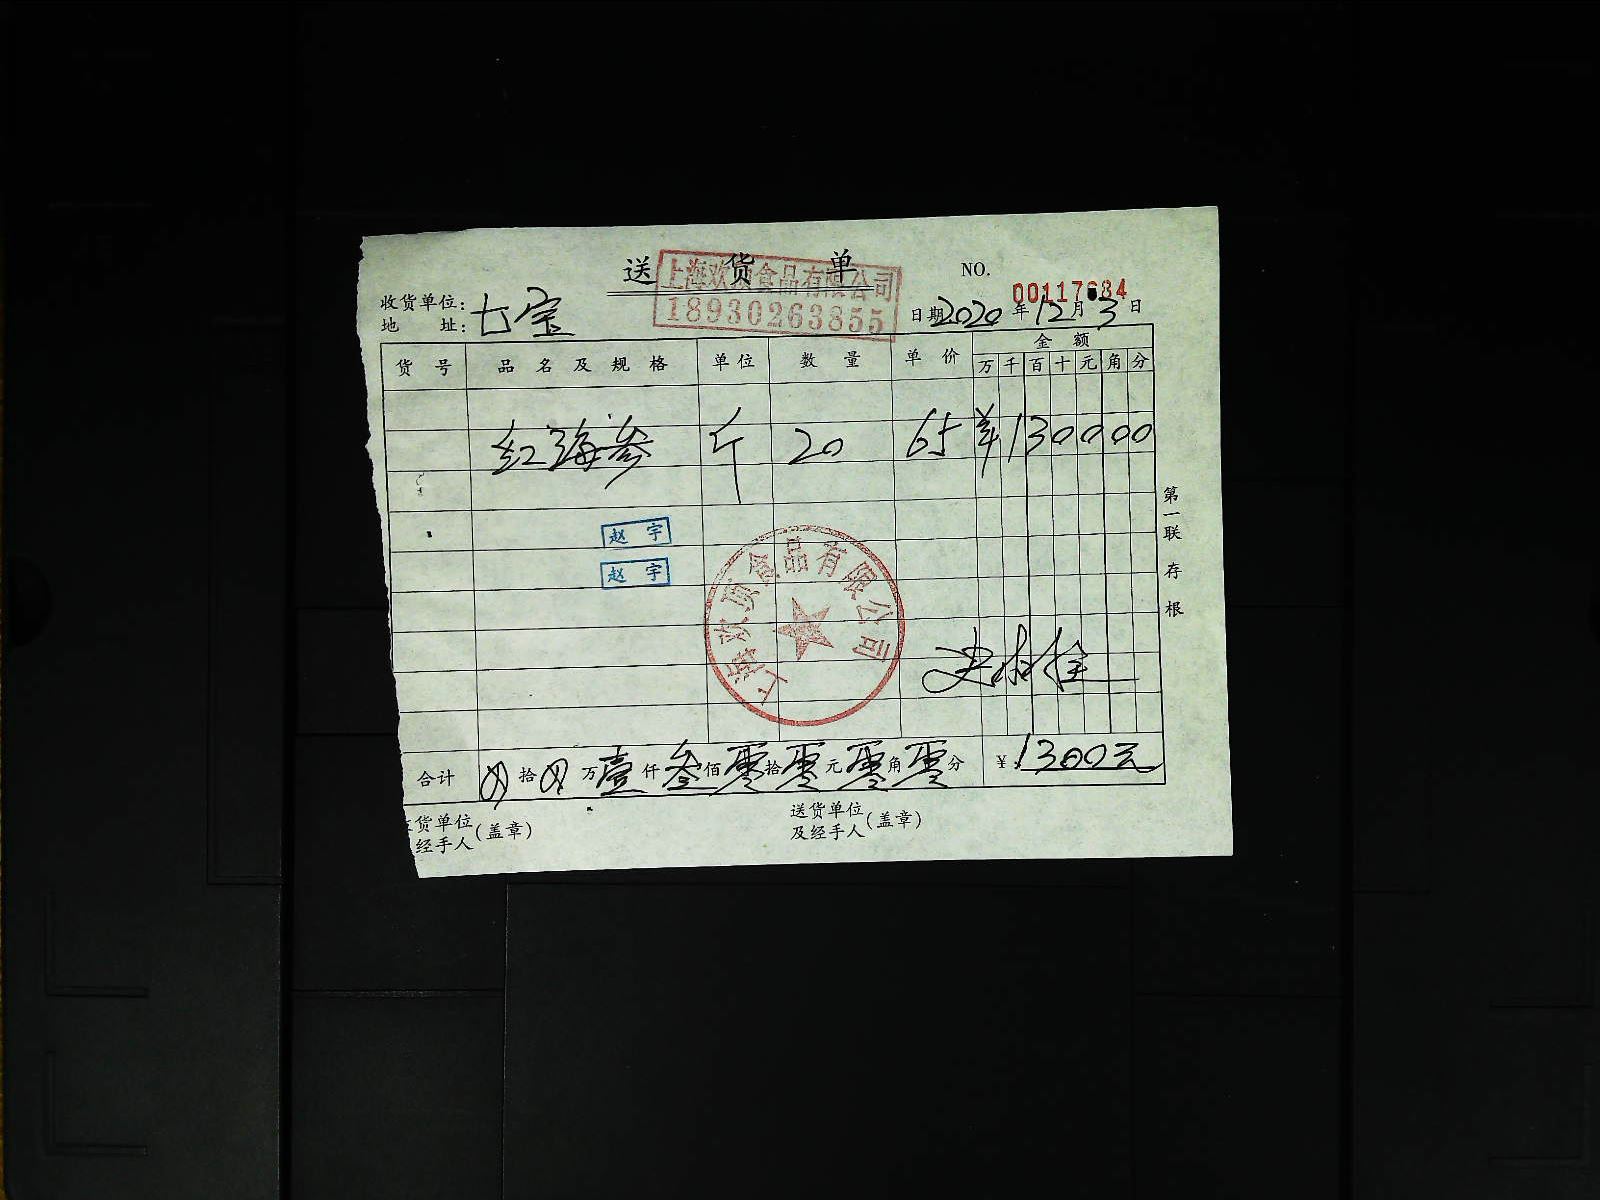 送货单
上海欢顶食品有限公司
18930263855
NO.
收货单位: 七宝
地 址:
日期 2020 年 12 月 3 日
货号 品名及规格 单位 数量 单价 金额
万 千 百 十 元 角 分
红海参 斤 20 65 ¥ 1 3 0 0 0 0
赵宇
赵宇
上海欢顶食品有限公司
第一联 存根
合计 拾 万 壹 仟 叁 佰 零 拾 零 元 零 角 零 分 ¥ 1300元
货单位
经手人(盖章)
送货单位
及经手人(盖章)